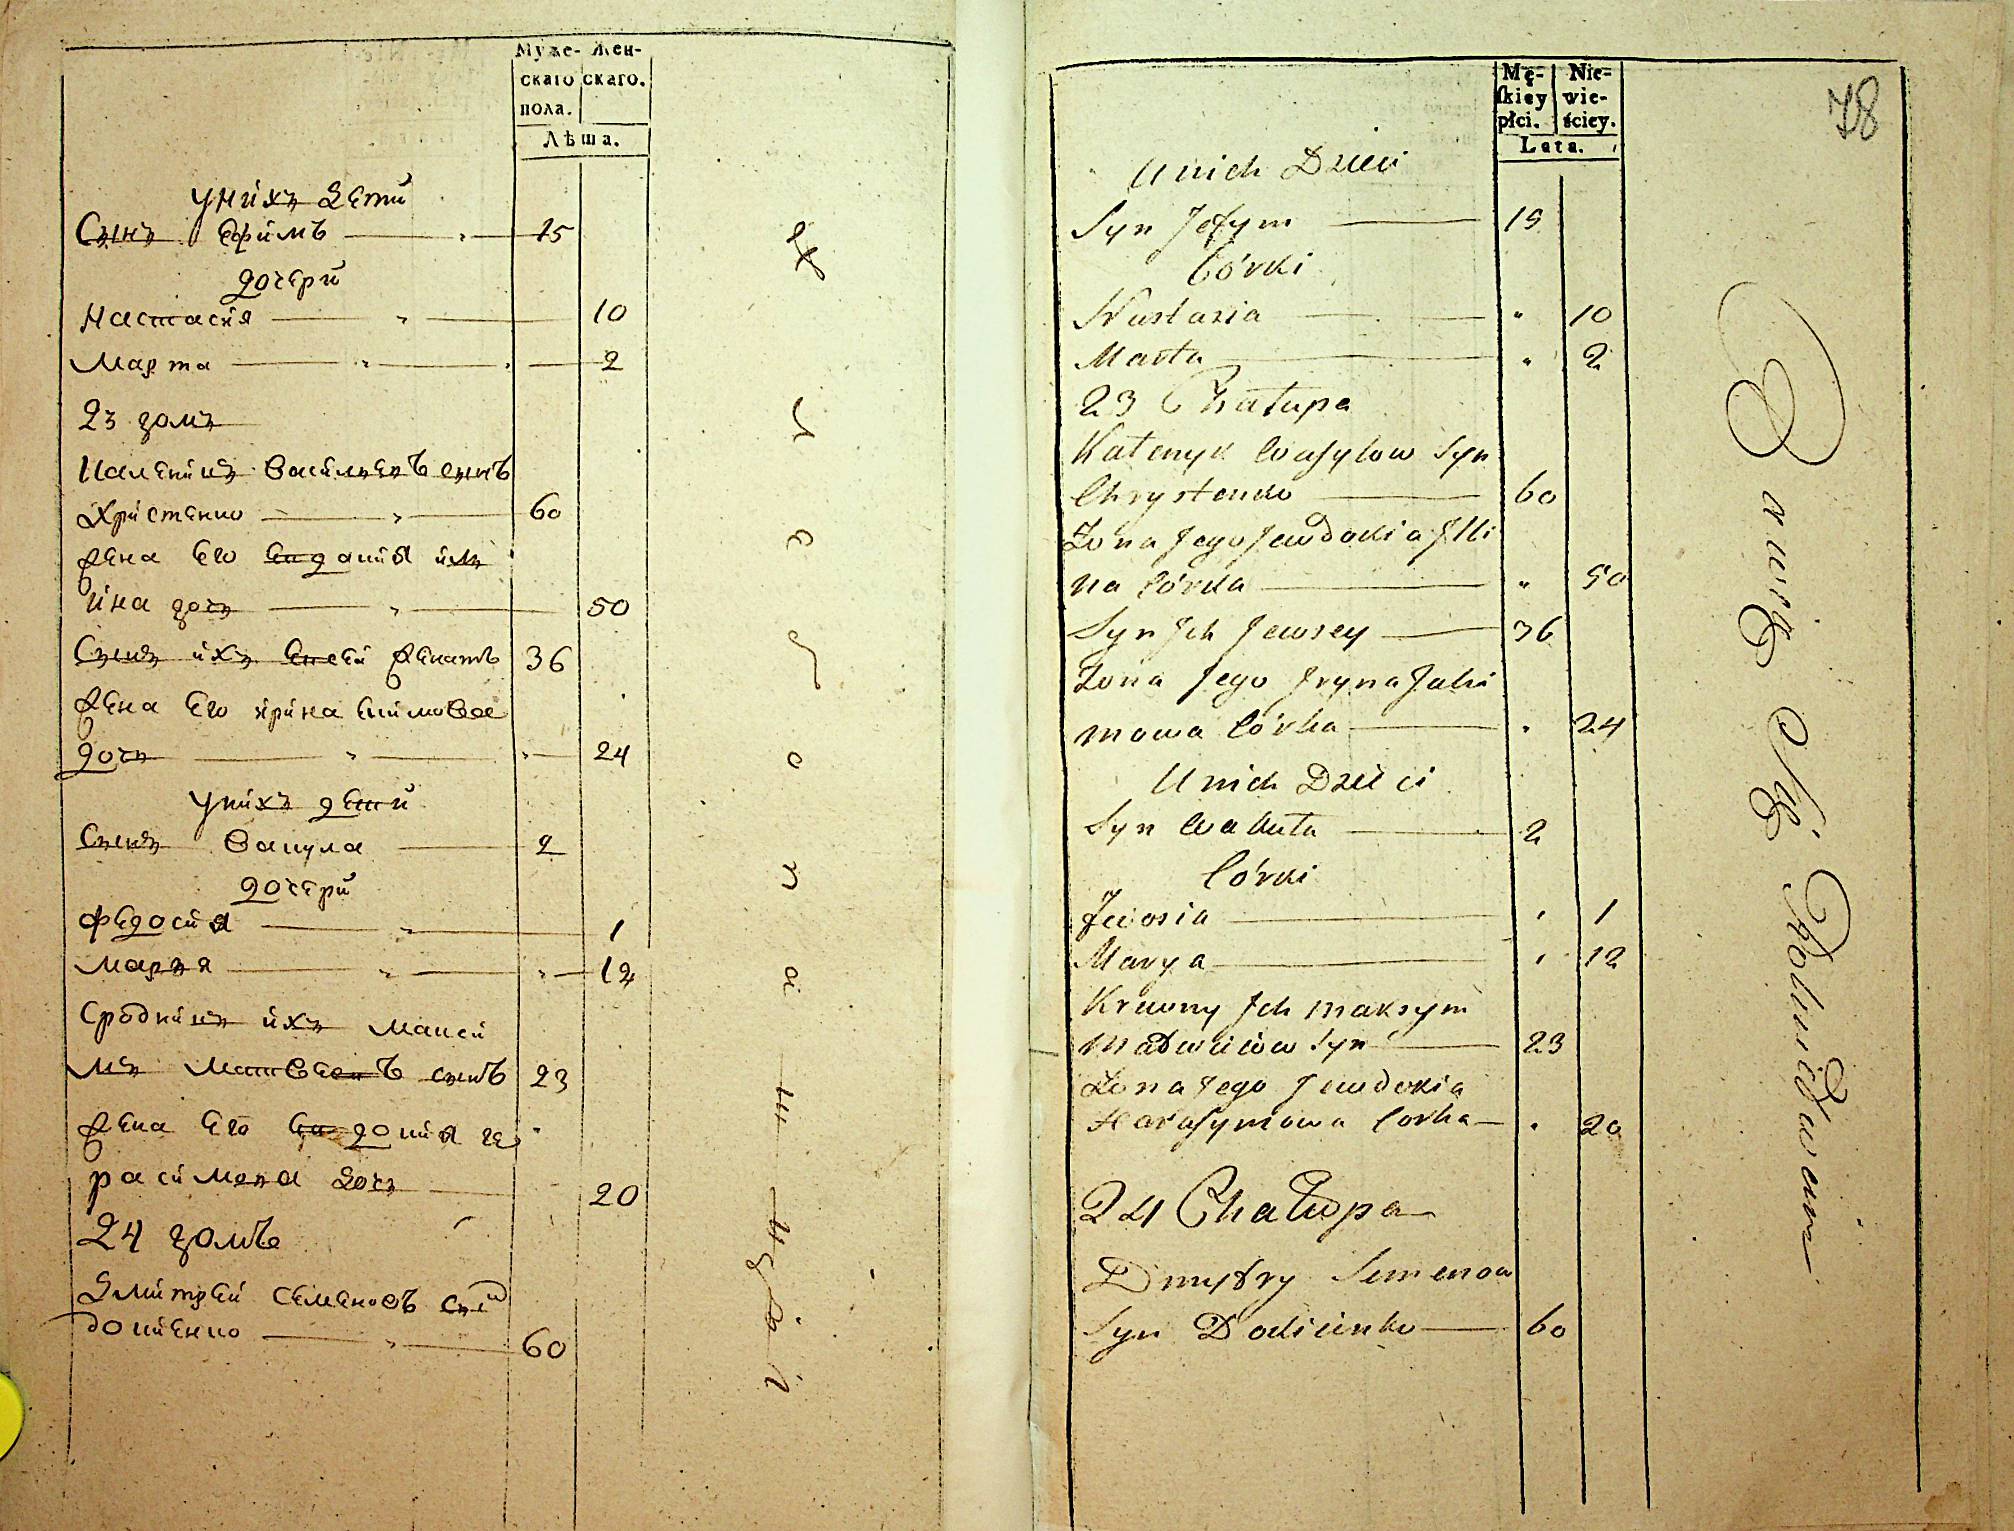 Муже- Жен-
скаго скаго.
пола.
Лѣта.
У нихъ дети
Сынъ Ефимъ 15
дочери
Настасия 10
Марта 2
23 домъ
Калѣникъ Васильевъ сынъ
Христенко 60
жена его Евдокия Иль
ина дочь 50
Сынъ ихъ Евсей женатъ 36
жена его Ирина Екимова
дочь 24
У нихъ дети
Сынъ Вакула 2
дочери
Федосия 1
Марья 12
Сродникъ ихъ Макси
мъ Матвеевъ сынъ 23
жена его Евдокия Ге
расимова дочь 20
24 домъ
Дмитрей Семеновъ сынъ
Доценко 60
78
Mę- Nie-
skiey wie-
płci. ściey.
Lata.
U nich Dzieci
Syn Jefym 15
Córki
Nastazia 10
Marta 2
23 Chałupa
Kalenyk Wasylow Syn
Chrystenko 60
Żona Jego Jewdokia Jlli
na Córka 50
Syn Jch Jewsey 36
Żona Jego Jryna Jaki
mowa Córka 24
U nich Dzieci
Syn Wakuła 2
Córki
Fewosia 1
Marya 12
Krewny Jch Maksym
Matweiow Syn 23
Żona Jego Jewdokia
Harasymowa Corka 20
24 Chałupa
Dmytry Semenow
Syn 60